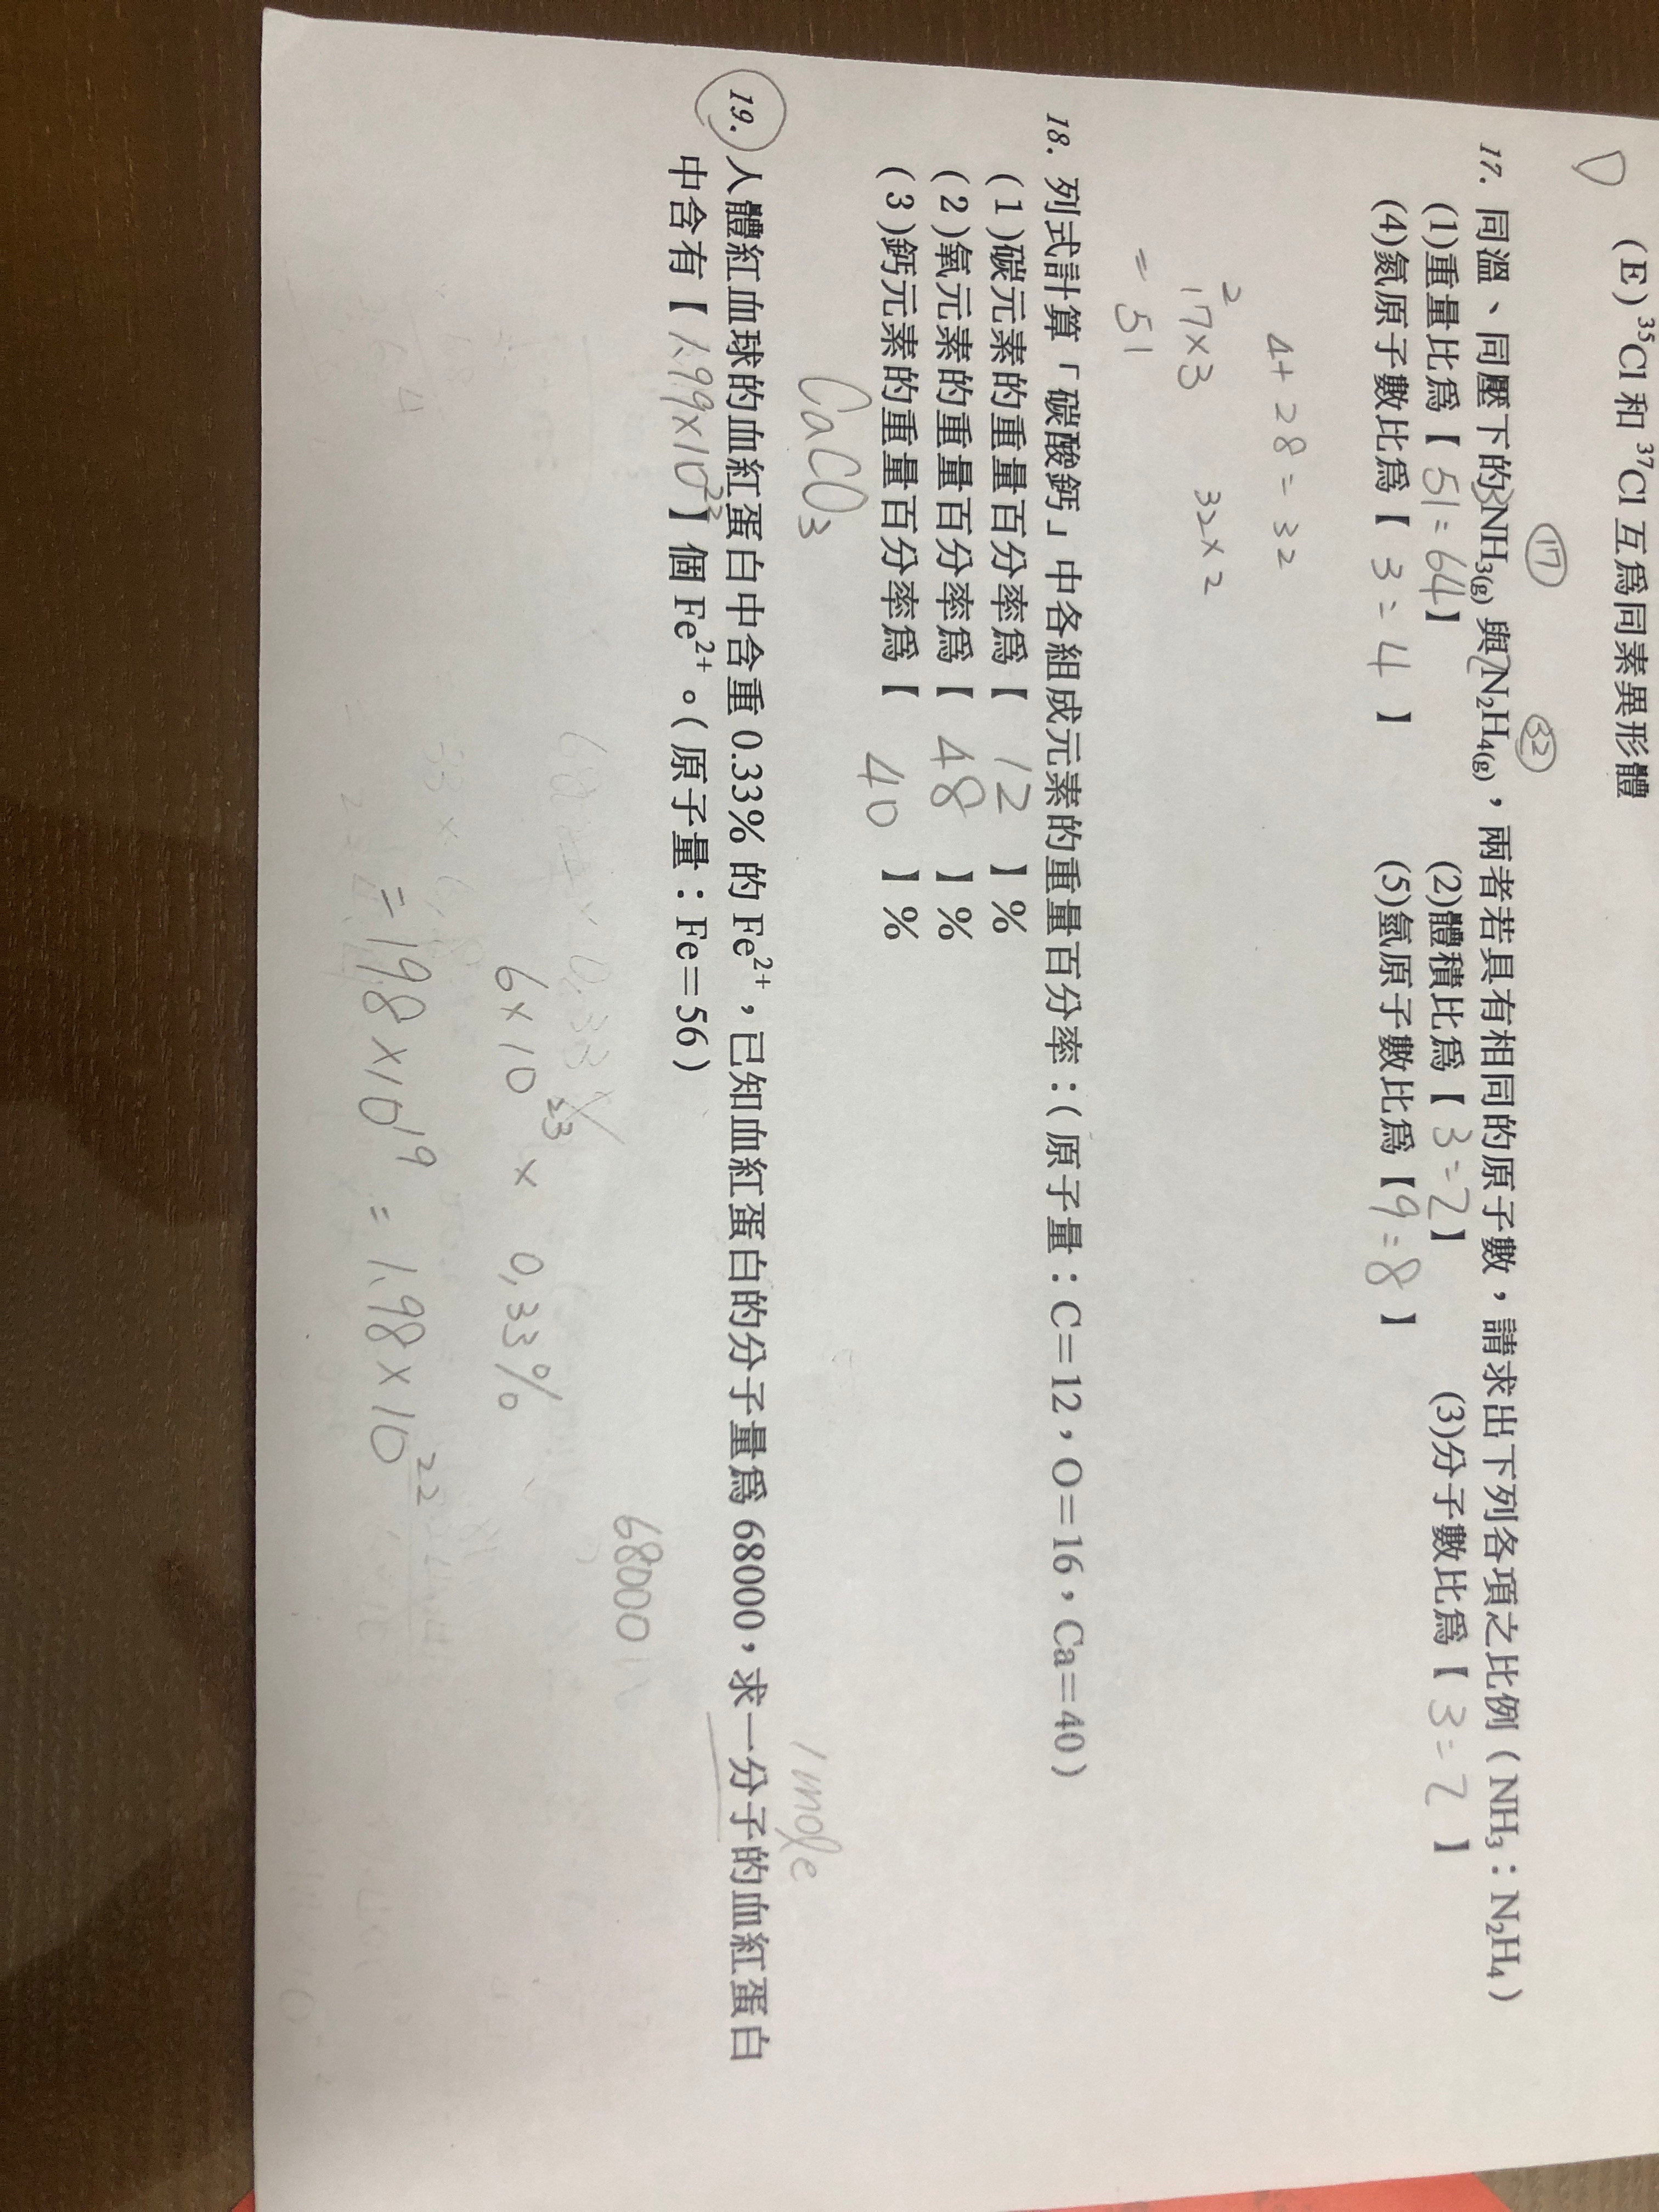 (E)³⁵Cl和³⁷Cl互為同素異形體
D
⑰ ㉜
17. 同溫、同壓下的3NH₃(g)與2N₂H₄(g),兩者若具有相同的原子數,請求出下列各項之比例(NH₃:N₂H₄)
(1)重量比為【51:64】 (2)體積比為【3:2】 (3)分子數比為【3:2】
(4)氮原子數比為【3:4】 (5)氫原子數比為【9:8】
4+28=32
2
17×3 32×2
=51
18. 列式計算「碳酸鈣」中各組成元素的重量百分率:(原子量:C=12,O=16,Ca=40)
(1)碳元素的重量百分率為【12】%
(2)氧元素的重量百分率為【48】%
(3)鈣元素的重量百分率為【40】%
CaCO₃
1 mole
19. 人體紅血球的血紅蛋白中含重0.33%的Fe²⁺,已知血紅蛋白的分子量為68000,求一分子的血紅蛋白
中含有【1.99×10²²】個Fe²⁺。(原子量:Fe=56)
68000
6×10²³ × 0.33%
=198×10¹⁹ = 1.98×10²²